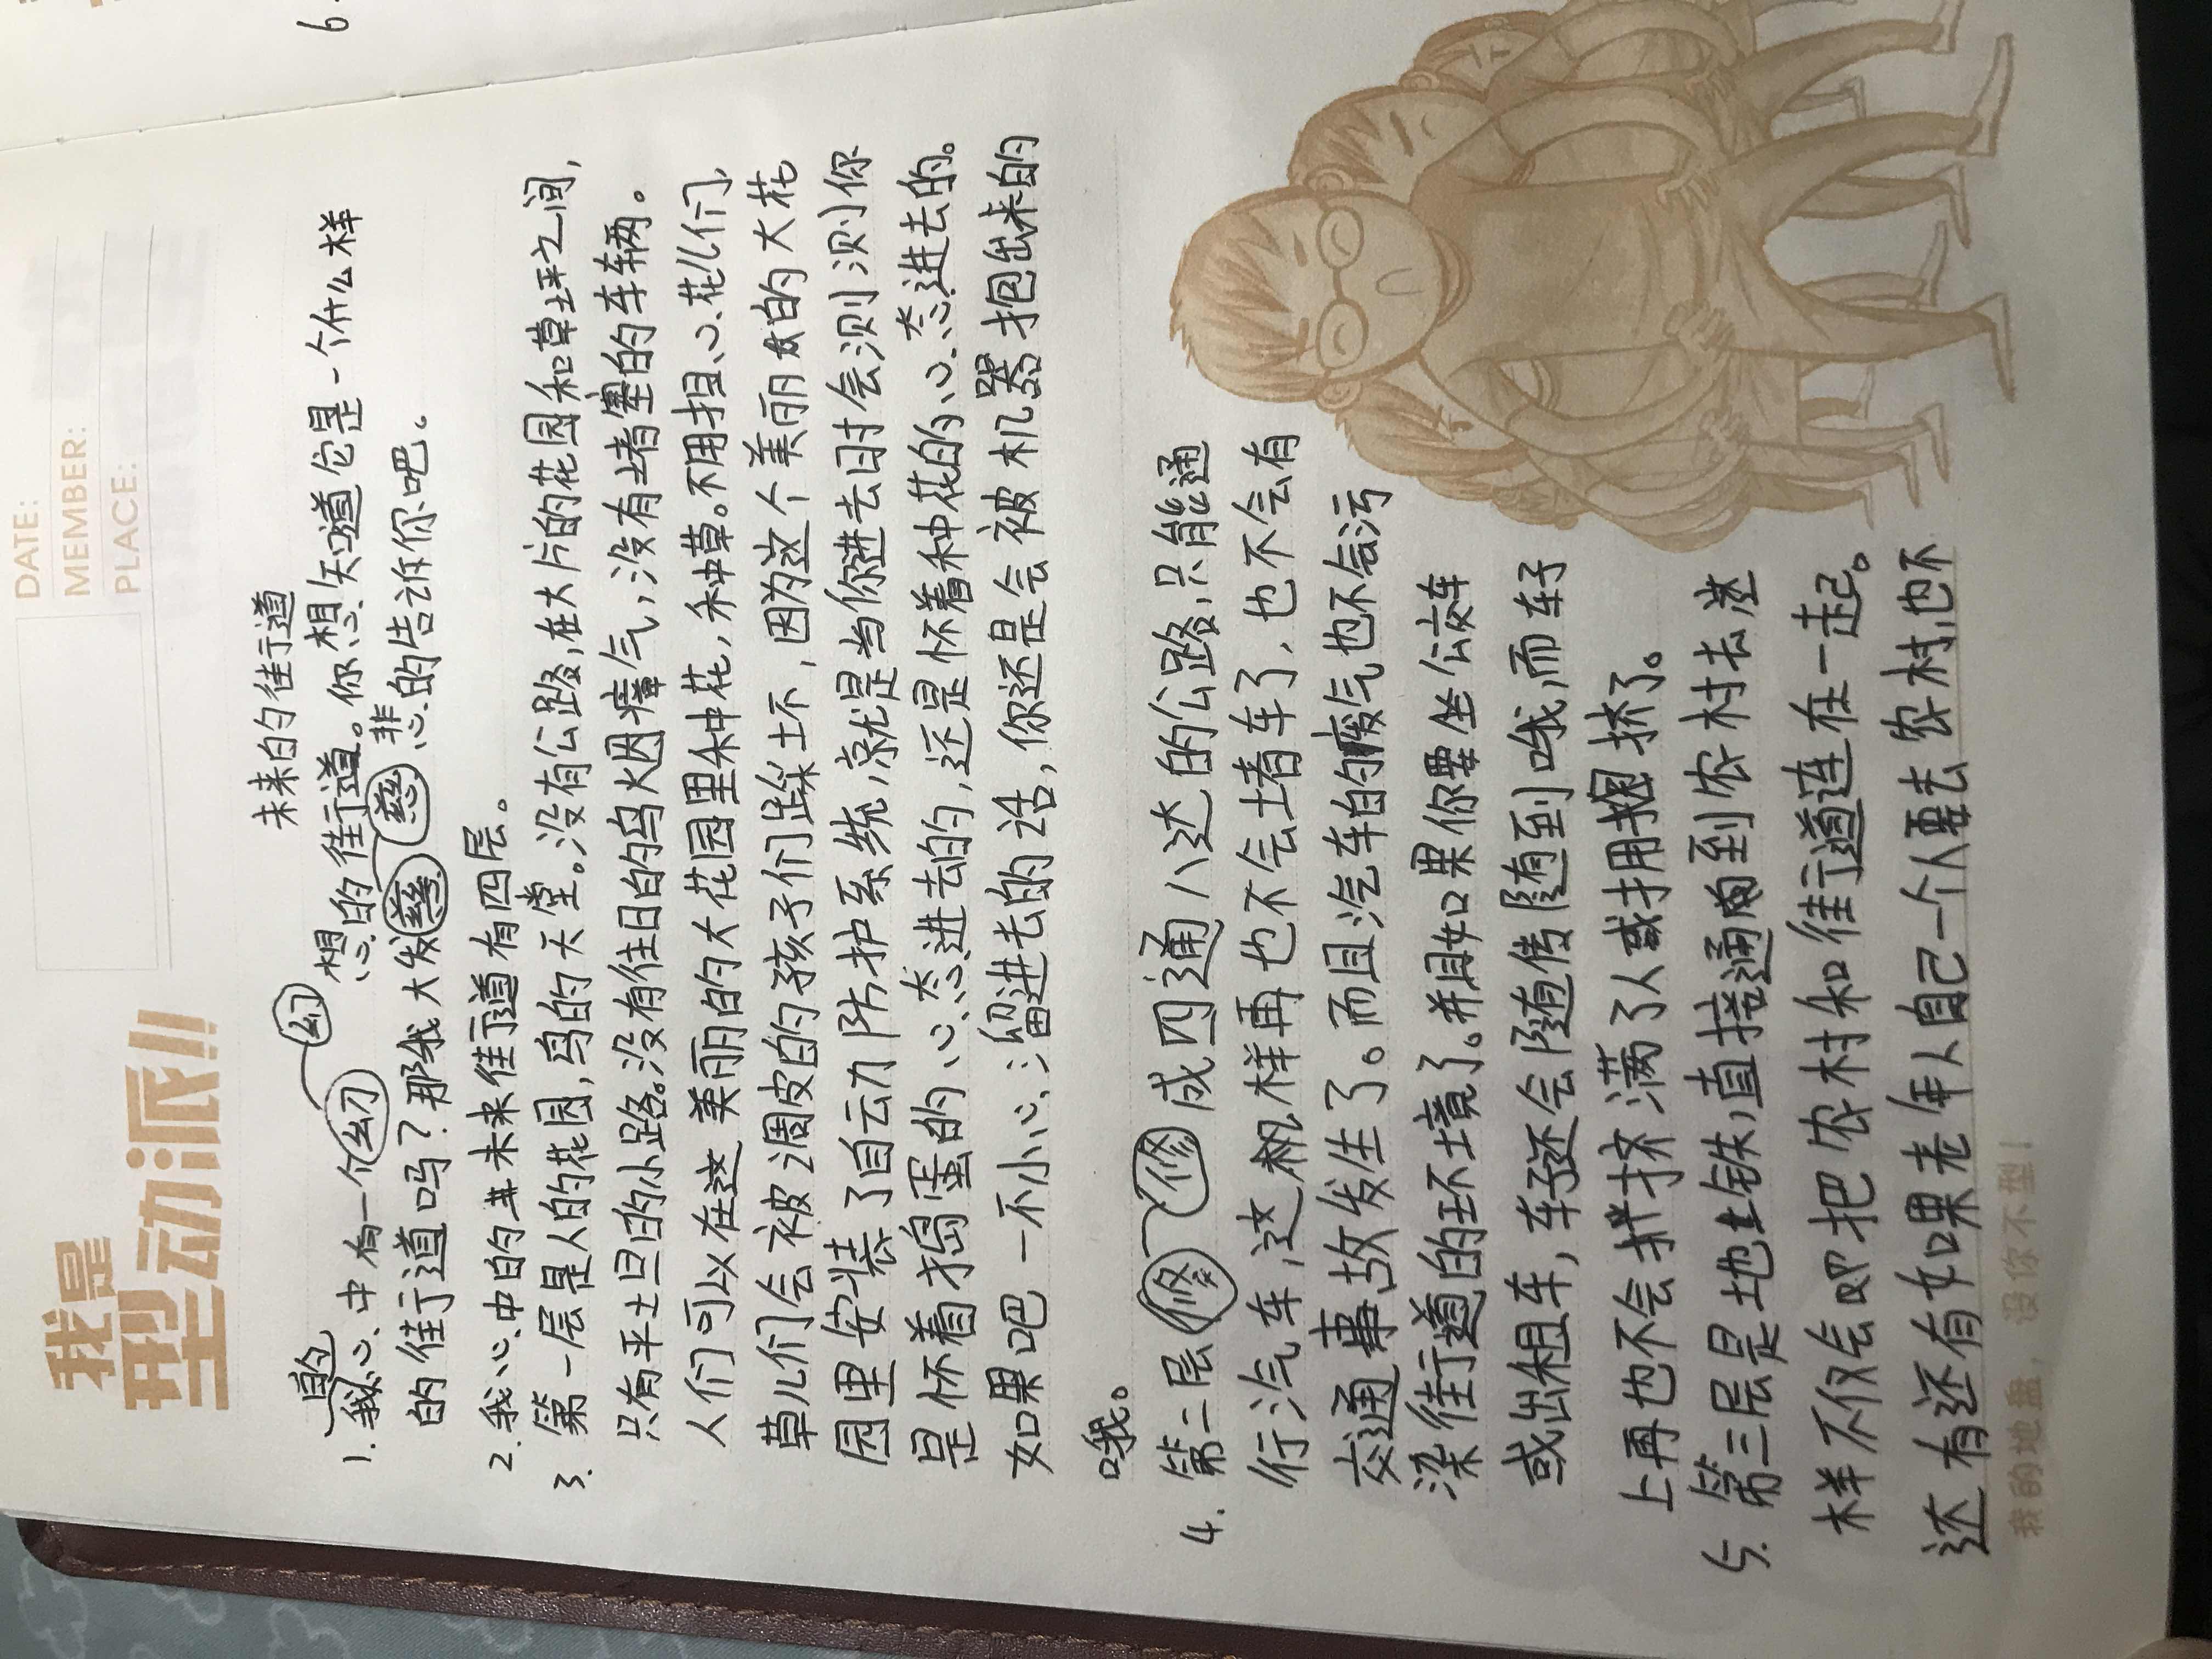 我是
型动派!!!
DATE:
MEMBER:
PLACE:
6.
未来的街行道
1. 我心中有一个幻想的街行道。你想知道它是一个什么样
的街行道吗？那我大发慈悲的告诉你吧。
2. 我心中的未来街行道有四层。
3. 第一层是人的花园，鸟的天堂。没有公路，在大片的花园和草坪之间，
只有平土旦的小路。没有往日的乌烟瘴气，没有堵塞的车辆。
人们可以在这美丽的大花园里种花，种草。不用担心花儿们，
草儿们会被调皮的孩子们踩坏，因为这个美丽的大花
园里安装了自动防护系统，就是当你进去时会测测你
是怀着捣蛋的心态进去的，还是怀着种花的心态进去的。
如果吧一不小心溜进去的话，你还是会被机器抱出来的
哦。
4. 第二层修成四通八达的公路，只能通
行汽车，这样再也不会堵车了，也不会有
交通事故发生了。而且汽车的废气也不会污
染街行道的环境了。并且如果你要坐公交车
或出租车，车还会随传随到哦，而车子
上再也不会挤满了人或拥挤了。
5. 第三层是地铁，直接通到农村去这
样不仅会把农村和街行道连在一起。
还有还有如果老年人自己一个人要去农村，也不
我的地盘，没你不型！